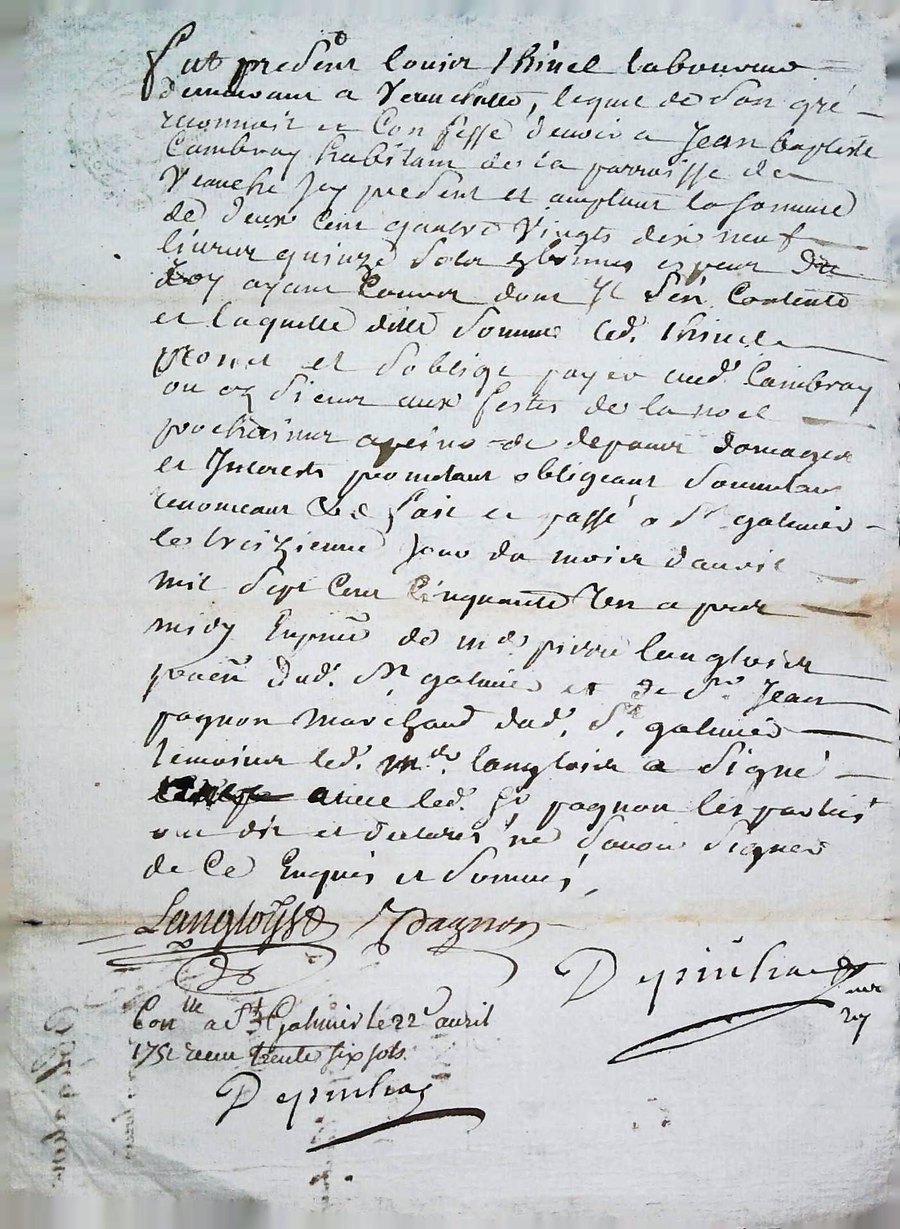 fut present louis thinel laboureur
demeurant a Veauchette, lequel de son gré
reconnoit et confesse devoir a Jean baptiste
Cambray habitant de la parroisse de
Veauche Icy present et acceptant la somme
de deux cent quatre Vingts dix neuf
livres quinze sols
ayant Cours dont Il s'en Contente
et laquelle ditte somme led. thinel
promet et s'oblige payer aud. Cambray
ou es siens aux festes de la noel
prochaines a peine de depens domages
et Interests promettant obligeant soumettant
renonceant &c fait et passé a St galmier
le treizieme jour du mois d'avril
mil sept Cent Cinquante Un apres
midy En presce de me. pierre langlois
dud. St galmier et de sr. Jean
pagnon marchand dud. St. galmier
temoins led. me. langlois a signé
avec led. Sr pagnon les parties
ont dit et declaré ne savoir signer
de Ce Enquis et sommés,
Langlois Pagnon
Depinhac
Conlle a St Galmier le 22e avril
1751 receu trente six sols.
Depinhac